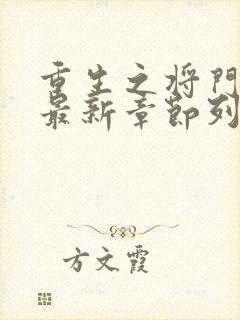 重生之将门
最新章节列
方文霞